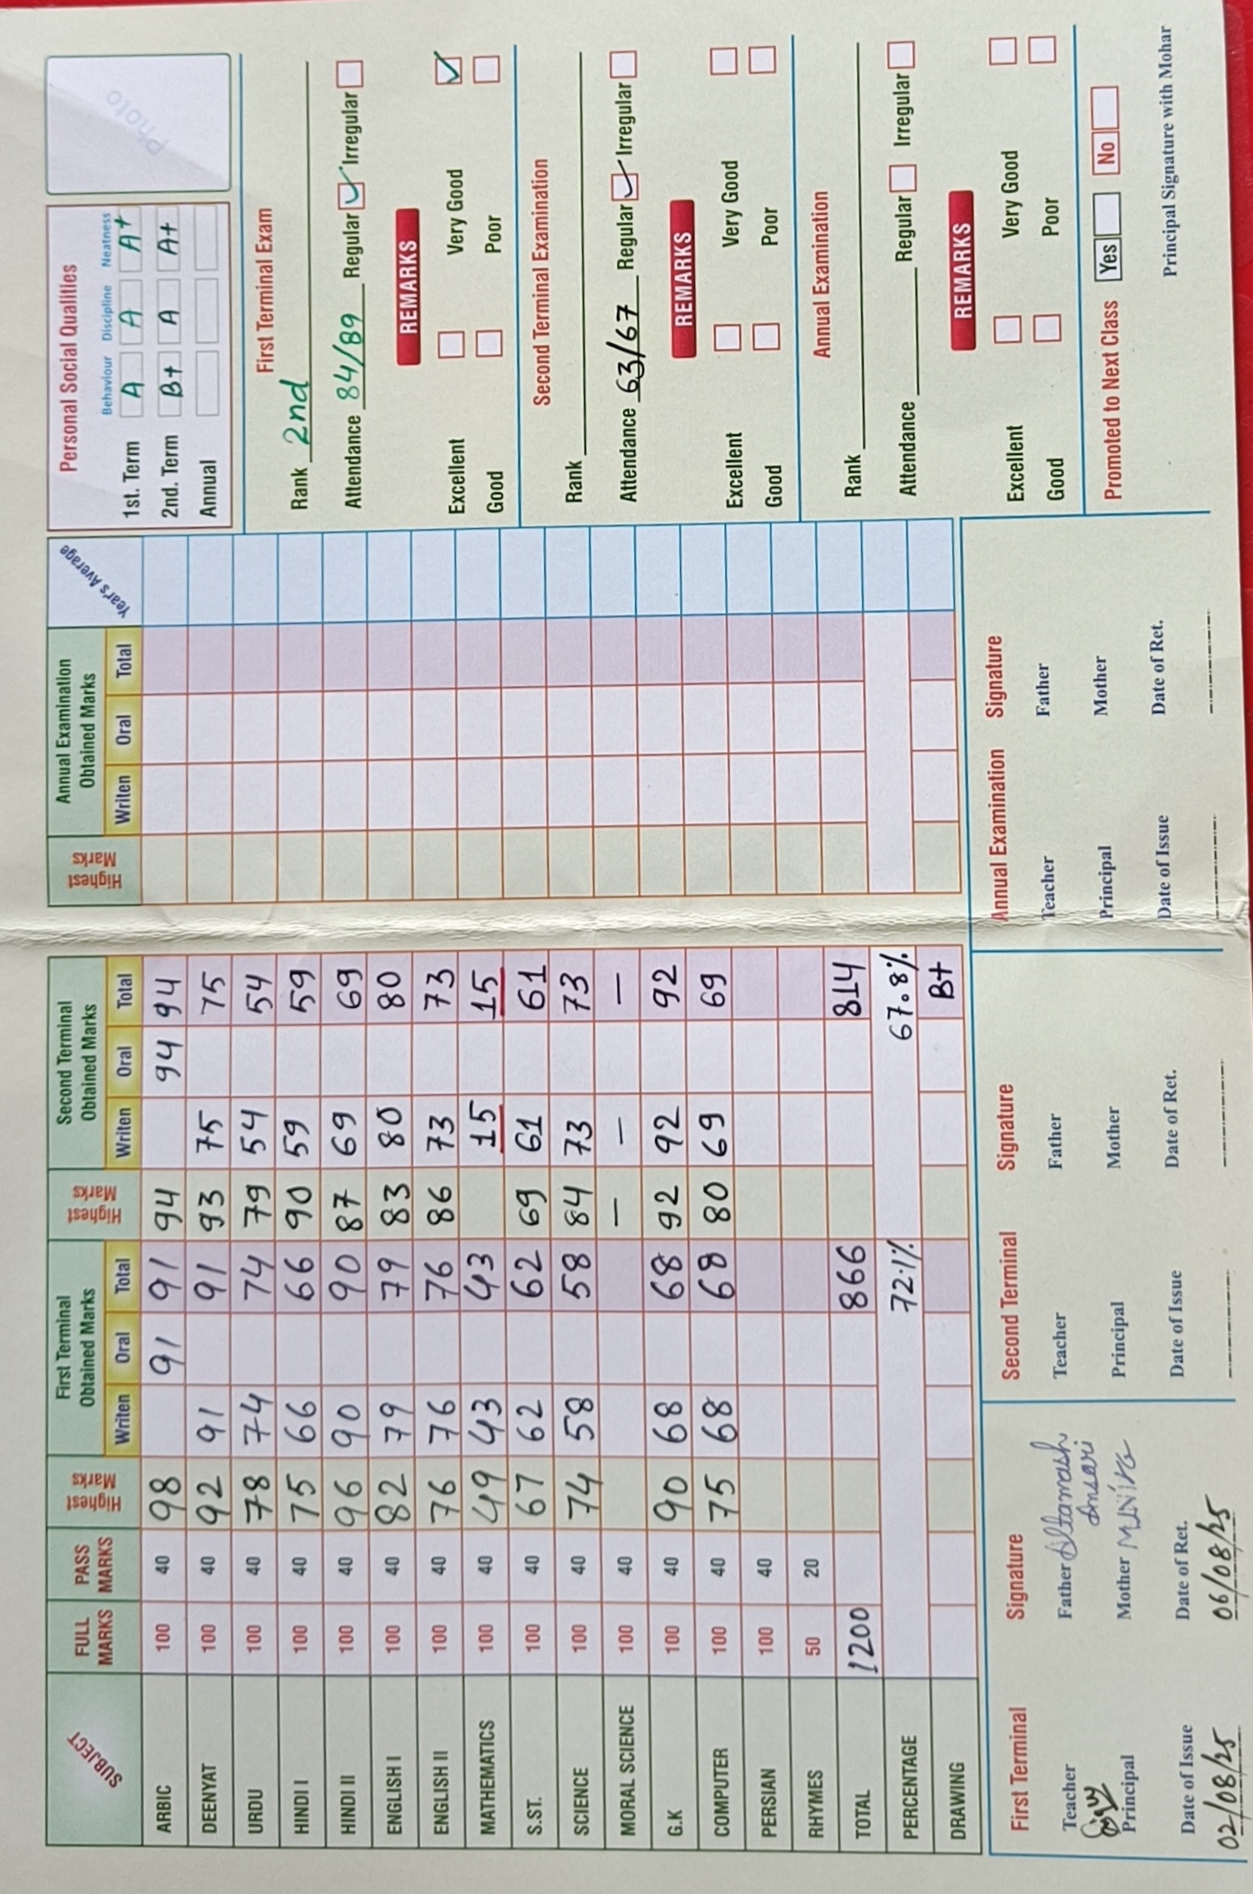 SUBJECT FULL MARKS PASS MARKS Highest Marks First Terminal Obtained Marks Writen Oral Total Highest Marks Second Terminal Obtained Marks Writen Oral Total Highest Marks Annual Examination Obtained Marks Writen Oral Total Year's Average
ARBIC 100 40 98 91 91 94 94 94
DEENYAT 100 40 92 91 91 93 75 75
URDU 100 40 78 74 74 79 54 54
HINDI I 100 40 75 66 66 90 59 59
HINDI II 100 40 96 90 90 87 69 69
ENGLISH I 100 40 82 79 79 83 80 80
ENGLISH II 100 40 76 76 76 86 73 73
MATHEMATICS 100 40 49 43 43 15 15
S.ST. 100 40 67 62 62 69 61 61
SCIENCE 100 40 74 58 58 84 73 73
MORAL SCIENCE 100 40 – – –
G.K 100 40 90 68 68 92 92 92
COMPUTER 100 40 75 68 68 80 69 69
PERSIAN 100 40
RHYMES 50 20
TOTAL 1200 866 814
PERCENTAGE 72.1% 67.8%
DRAWING B+
First Terminal Signature
Teacher Father Altamash Ansari
Principal Mother
Date of Issue Date of Ret.
02/08/25 06/08/25
Second Terminal Signature
Teacher Father
Principal Mother
Date of Issue Date of Ret.
Annual Examination Signature
Teacher Father
Principal Mother
Date of Issue Date of Ret.
Personal Social Qualities
Behaviour Discipline Neatness
1st. Term A A A+
2nd. Term B+ A A+
Annual
Photo
First Terminal Exam
Rank 2nd
Attendance 84/89 Regular Irregular
REMARKS
Excellent Very Good
Good Poor
Second Terminal Examination
Rank
Attendance 63/67 Regular Irregular
REMARKS
Excellent Very Good
Good Poor
Annual Examination
Rank
Attendance Regular Irregular
REMARKS
Excellent Very Good
Good Poor
Promoted to Next Class Yes No
Principal Signature with Mohar